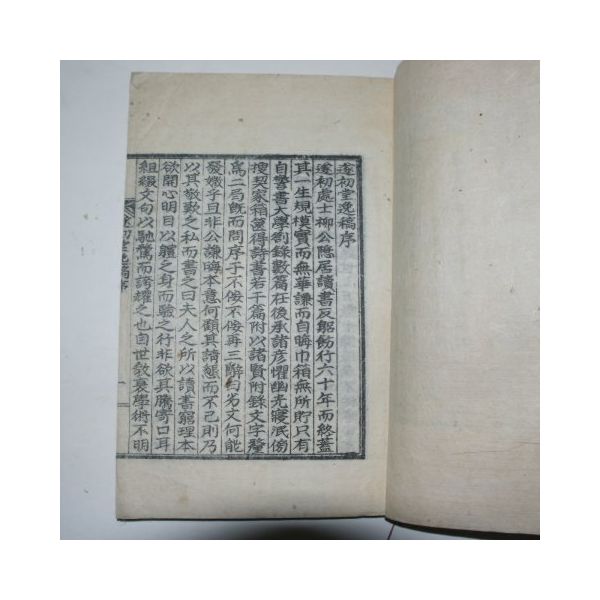 遂初堂逸稿序
遂初處士柳公隱居讀書反躬飭行六十年而終蓋
其一生規模實而無華謙而自晦巾箱無所貯只有
自警書大學劄錄數篇在後承諸彦懼幽光寖泯傍
搜契家箱篋得詩書若干篇附以諸賢附錄文字釐
爲二局旣而問序于不佞不佞再三辭曰劣文何能
發嬓乎且非公謙晦本意何顧其請態而不已則乃
以其敬歎之私而書之曰夫人之所以讀書窮理本
欲開心明目以體之身而驗之行非欲其騰寄口耳
組綴文句以馳騖而誇耀之也自世敎衰學術不明
遂初堂逸稿序 一